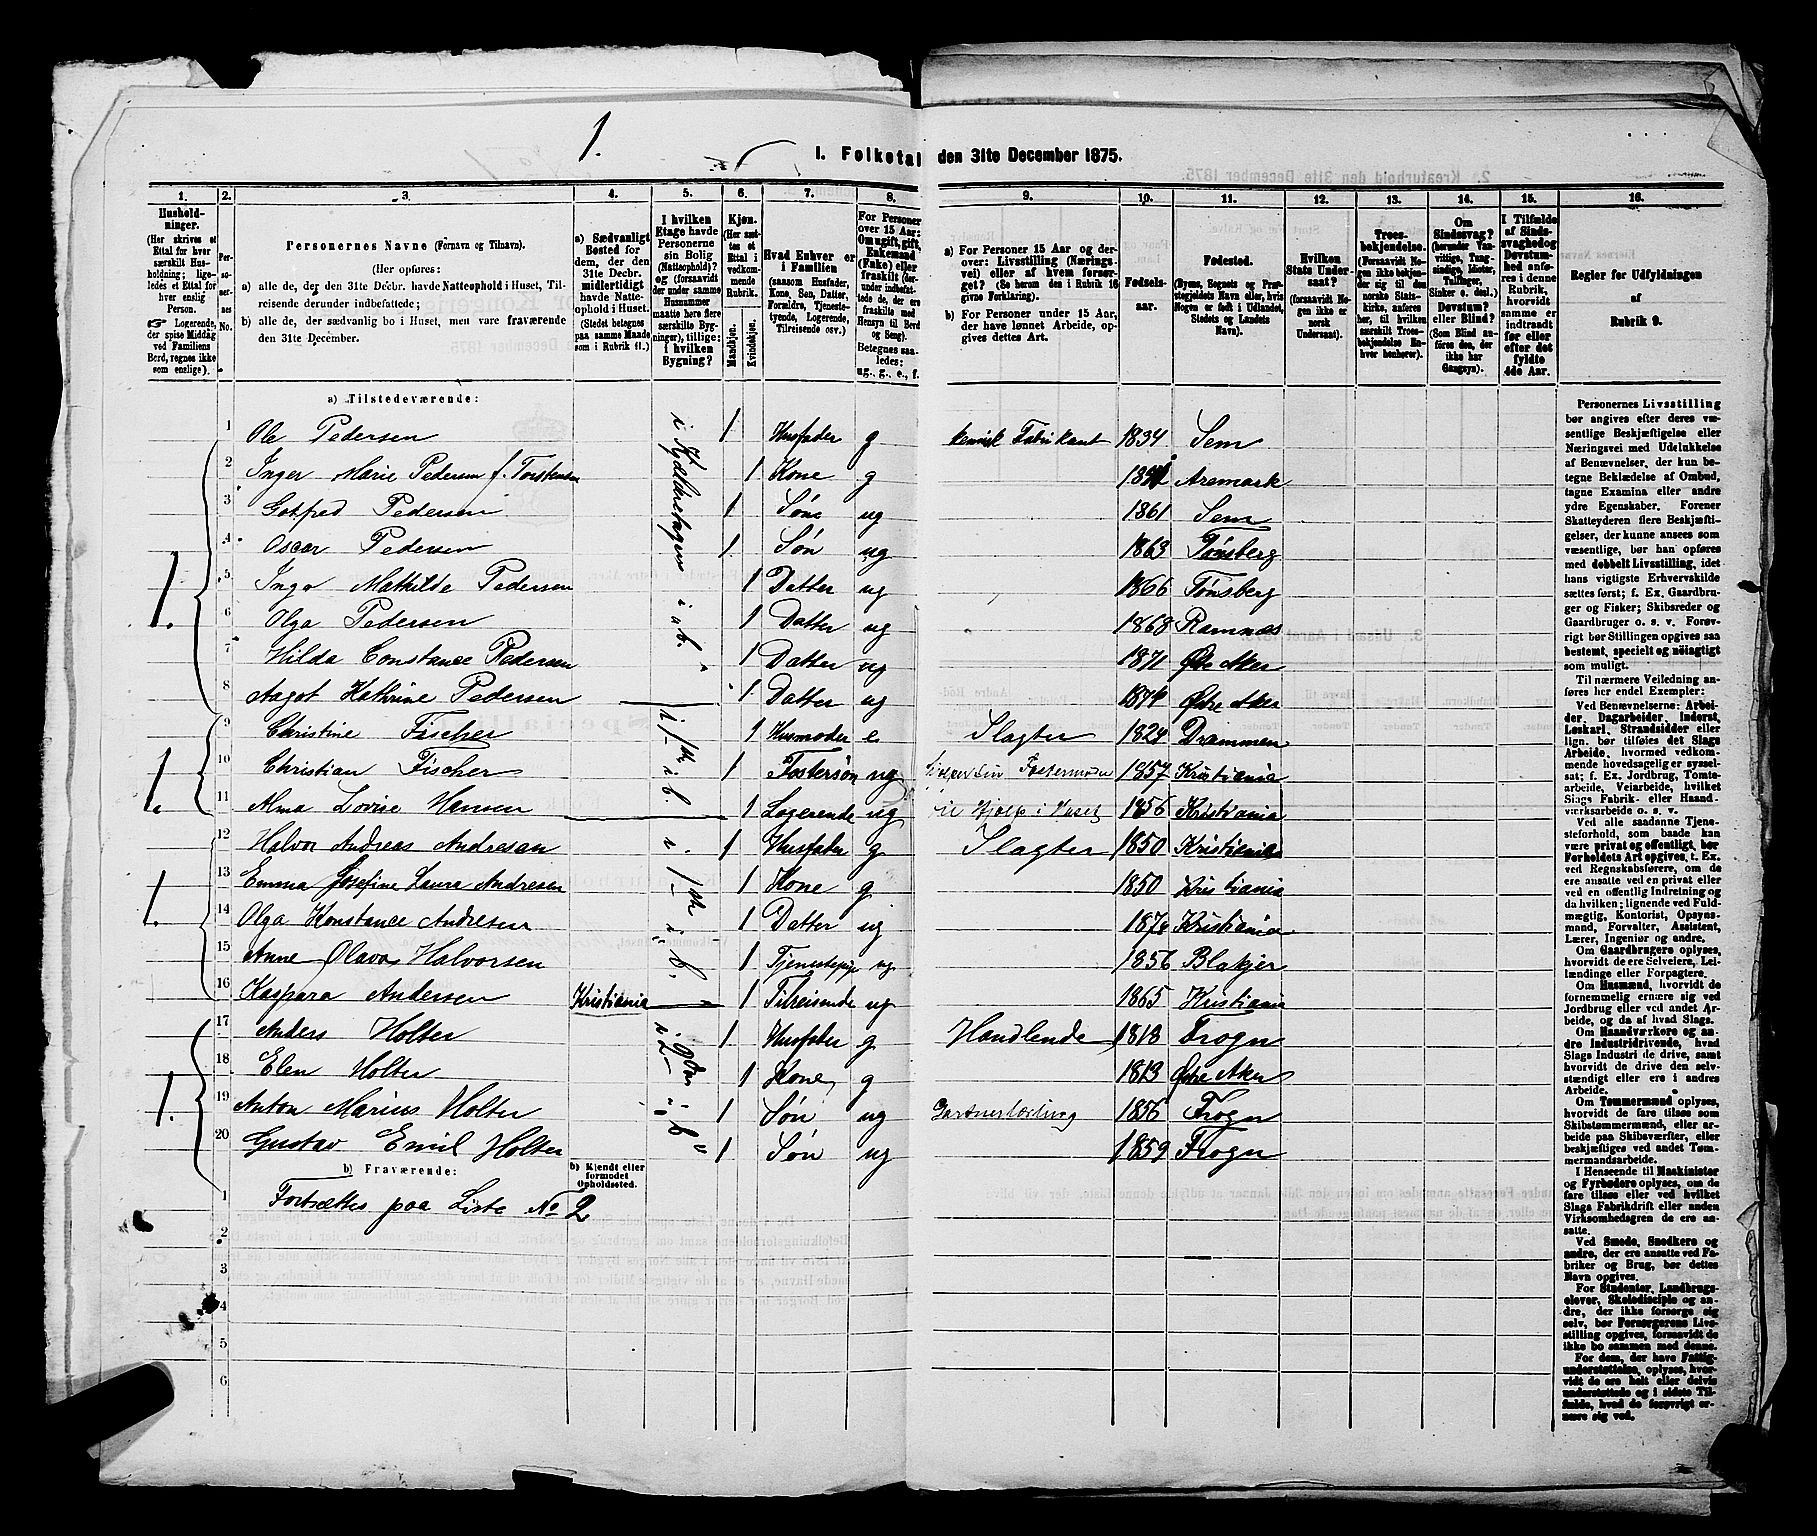 1.
I. Folketal den 31te December 1875.
1. 2. 3. 4. 5. 6. 7. 8. 9. 10. 11. 12. 13. 14. 15. 16.
Husholdninger. (Her skrives et Ettal for hver særskilt Husholdning; ligeledes et Ettal for hver enslig Person. Logerende, der spise Middag ved Familiens Bord, regnes ikke som enslige).
Personernes No.
Personernes Navne (Fornavn og Tilnavn).
(Her opføres:
a) alle de, der den 31te Decbr. havde Natteophold i Huset, Tilreisende derunder indbefattede;
b) alle de, der sædvanlig bo i Huset, men vare fraværende den 31te December.
a) Sædvanligt Bosted for dem, der den 31te Decbr. midlertidigt havde Natteophold i Huset. (Stedet betegnes paa samme Maade som i Rubrik 11.)
I hvilken Etage havde Personerne sin Bolig (Natteophold)? (forsaavidt der under samme Husnummer maatte høre flere særskilte Bygninger), tillige: i hvilken Bygning?
Kjøn. (Her sættes et Ettal i vedkommende Rubrik. Mandkjøn. Kvindekjøn.
Hvad Enhver er i Familien (saasom Husfader, Kone, Søn, Datter, Forældre, Tjenestetyende, Logerende, Tilreisende osv.)
For Personer over 15 Aar: Om ugift, gift, Enkemand (Enke) eller fraskilt (derunder indbefattede de, der ere fraskilte med Hensyn til Bord og Seng). Betegnes saaledes: ug., g., e., f.
a) For Personer 15 Aar og derover: Livsstilling (Næringsvei) eller af hvem forsørget? (Se herom den i Rubrik 16 givne Forklaring).
b) For Personer under 15 Aar, der have lønnet Arbeide, opgives dettes Art.
Fødselsaar.
Fødested. (Byens, Sognets og Præstegjeldets Navn, eller, hvis Nogen er født i Udlandet, Stedets og Landets Navn).
Hvilken Stats Undersaat? (forsaavidt Nogen ikke er norsk Undersaat).
Troesbekjendelse. (Forsaavidt Nogen ikke bekjender sig til den norske Statskirke, anføres her, til hvilken særskilt Troesbekjendelse Enhver henhører).
Om Sindssvag? (herunder Vanvittige, Tungsindige, Idioter, Tullinger, Sinker o. desl.) Døvstum? eller Blind? (Som Blind anføres den, der ikke har Gangsyn).
I Tilfælde af Sindssvaghed og Døvstumhed anføres i denne Rubrik, hvorvidt samme er indtraadt før eller efter det fyldte 4de Aar.
Regler for Udfyldningen af Rubrik 9.
a) Tilstedeværende:
1 Ole Pedersen 1 Husfader g kemisk Fabrikant 1834 Sem
i Kjælderetagen i b.
2 Inger Marie Pedersen f. Torstensen 1 Kone g Aremark
3 Gotfred Pedersen 1 Søn ug 1861 Sem
4 Oscar Pedersen 1 Søn ug 1863 Tønsberg
1. 5 Inga Mathilde Pedersen 1 Datter ug 1866 Tønsberg
6 Olga Pedersen 1 Datter ug 1868 Ramnæs
7 Hilda Constance Pedersen 1 Datter ug 1871 Østre Aker
8 Aagot Kathrine Pedersen 1 Datter ug 1874 Østre Aker
9 Christine Fischer i 1ste i b. 1 Husmoder e Slagter 1824 Drammen
1. 10 Christian Fischer 1 Fostersøn ug hjelper sin Fostermoder 1857 Kristiania
11 Alma Lovise Hansen 1 Logerende ug til Hjelp i Huset 1856 Kristiania
12 Halvor Andreas Andresen i 1ste i b. 1 Husfader g Slagter 1850 Kristiania
1. 13 Emma Josefine Laura Andresen 1 Kone g 1850 Kristiania
14 Olga Konstance Andresen 1 Datter ug Kristiania
15 Anne Olava Halvorsen 1 Tjenestepige ug 1856 Blakjer
16 Kaspara Andersen Kristiania 1 Tilreisende ug 1865 Kristiania
17 Anders Holter i 2den i b 1 Husfader g Handlende 1813 Frogn
18 Elen Holter 1 Kone g 1813 Østre Aker
1. 19 Anton Marius Holter 1 Søn ug Gartnerlærling 1856 Frogn
20 Gustav Emil Holter 1 Søn ug 1859 Frogn
b) Fraværende: b) Kjendt eller formodet Opholdssted.
1 Fortsættes paa Liste No 2
2
3
4
5
6
Personernes Livsstilling
bør angives efter deres væ-
sentlige Beskjæftigelse eller
Næringsvei med Udelukkelse
af Benævnelser, der kun be-
tegne Beklædelse af Ombud,
tagne Examina eller andre
ydre Egenskaber. Forener
Skatteyderen flere Beskjæfti-
gelser, der kunne ansees som
væsentlige, bør han opføres
med dobbelt Livsstilling, idet
hans vigtigste Erhvervskilde
sættes først; f. Ex. Gaardbru-
ger og Fisker; Skibsreder og
Gaardbruger o. s. v. Forøv-
rigt bør Stillingen opgives saa
bestemt, specielt og nöiagtigt
som muligt.
Til nærmere Veiledning an-
føres her endel Exempler:
Ved Benævnelserne: Arbei-
der, Dagarbeider, Inderst,
Løskarl, Strandsidder eller
lign. bør tilføies det Slags
Arbeide, hvormed vedkom-
mende hovedsagelig er syssel-
sat; f. Ex. Jordbrug, Tomte-
arbeide, Veiarbeide, hvilket
Slags Fabrik- eller Haand-
værksarbeide o. s. v.
Ved alle saadanne Tjene-
steforhold, som baade kan
være privat og offentligt, bør
Forholdets Art opgives, t. Ex.
ved Regnskabsførere, om de
ere ansatte ved en privat eller
ved en offentlig Indretning og
da hvilken; lignende ved Fuld-
mægtig, Kontorist, Opsyns-
mand, Forvalter, Assistent,
Lærer, Ingeniør og andre.
Om Gaardbrugere oplyses,
hvorvidt de ere Selveiere, Lei-
lændinge eller Forpagtere.
Om Husmænd, hvorvidt de
fornemmelig ernære sig ved
Jordbrug eller ved andet Ar-
beide, og da af hvad Slags.
Om Haandværkere og an-
dre Industridrivende, hvad
Slags Industri de drive, samt
hvorvidt de drive den selv-
stændigt eller ere i andres
Arbeide.
Om Tømmermænd oplyses,
hvorvidt de fare tilsøs som
Skibstømmermænd, eller ar-
beide paa Skibsværfter, eller
beskjæftiges ved andet Tøm-
mermandsarbeide.
I Henseende til Maskinister
og Fyrbødere oplyses, om de
fare tilsøs eller ved hvilket
Slags Fabrikdrift eller anden
Virksomhedsgren de ere an-
satte.
Ved Smede, Snedkere og
andre, der ere ansatte ved Fa-
briker og Brug, bør dettes
Navn opgives.
For Studenter, Landbrugs-
elever, Skoledisciple og an-
dre, der ikke forsørge sig
selv, bør Forsørgerens Livs-
stilling opgives, forsaavidt de
ikke bo sammen med denne.
For dem, der have Fattig-
understøttelse, oplyses, hvor-
vidt de ere helt eller delvis
understøttede og i sidste Til-
fælde, hvad de forøvrigt er-
nære sig ved.